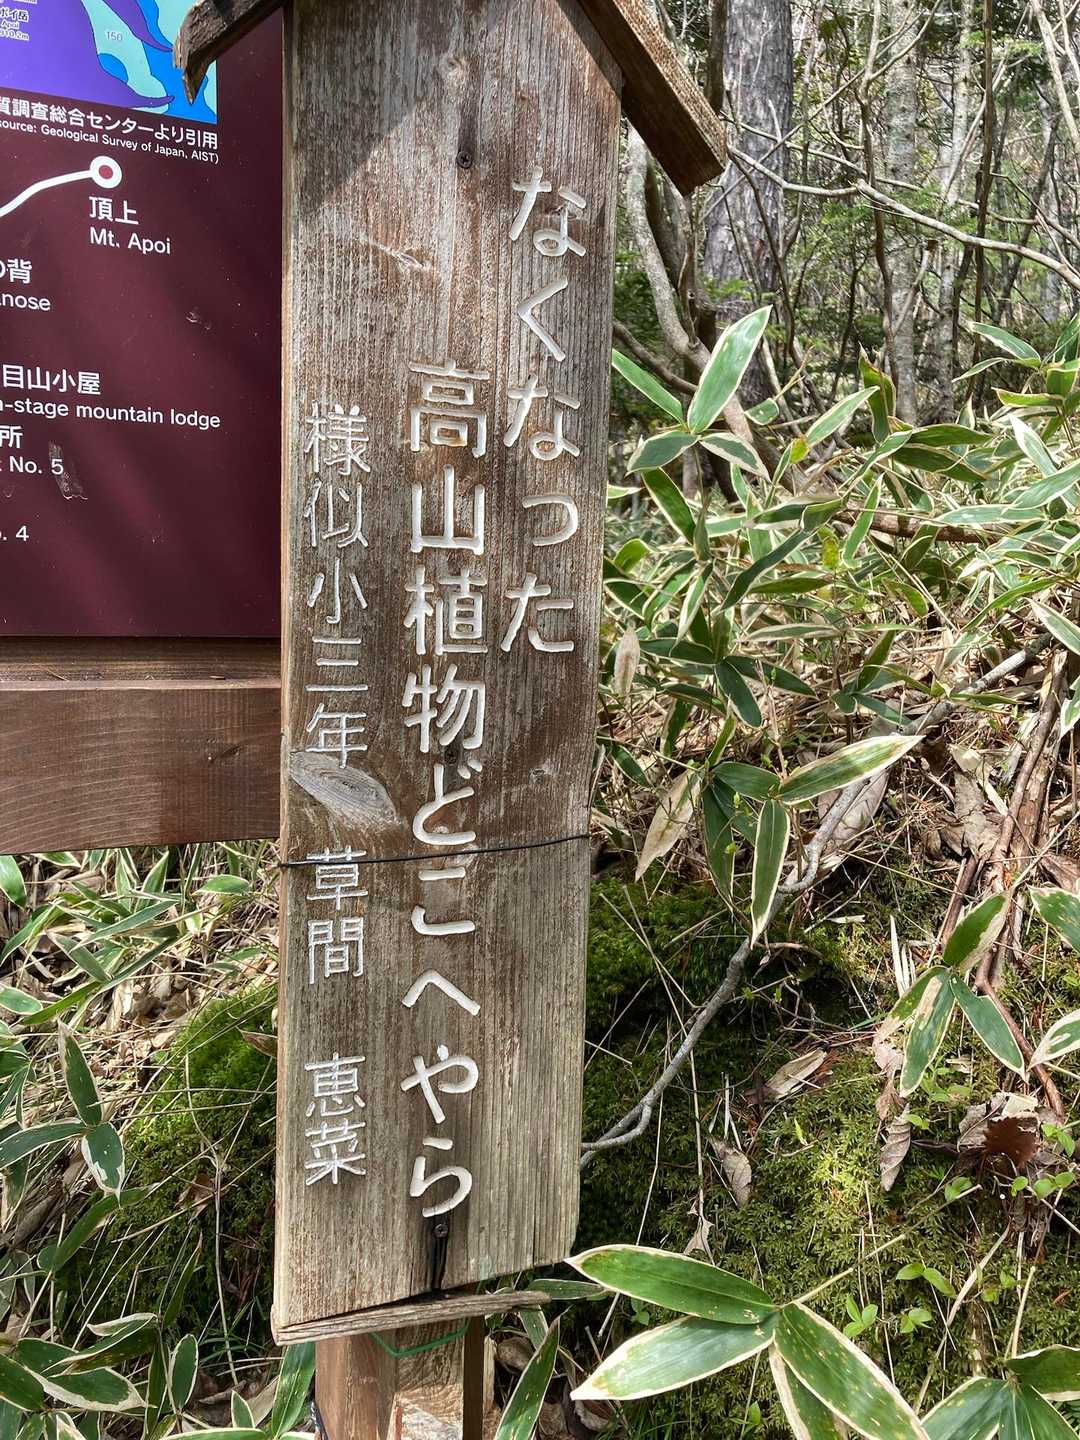 なくなった
高山植物どこへやら
様似小三年 草間 恵菜
Apoi
150
質調査総合センターより引用
source: Geological Survey of Japan, AIST)
頂上
Mt. Apoi
の背
anose
目山小屋
-stage mountain lodge
所
No. 5
. 4